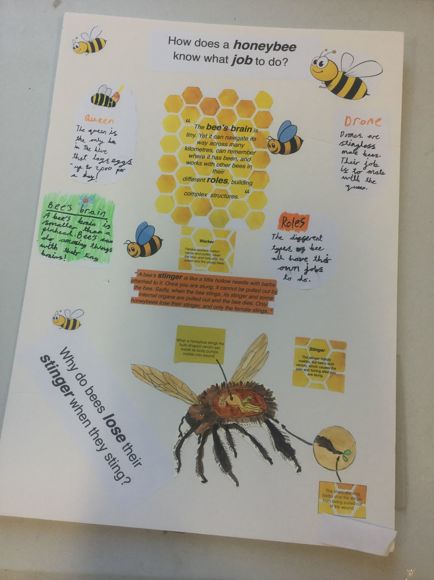 How does a honeybee
know what job to do?
Queen
The queen is
the only bee
in the hive
that lays eggs
up to 2000 per
a day!
"
The bee's brain is
tiny. Yet it can navigate its
way across many
kilometres, can remember
where it has been, and
works with other bees in
their
different roles, building
complex structures.
"
Drone
Drones are
stingless
male bees.
Their job
is to mate
with the
queen.
Bee's brain
A bee's brain is
smaller than a
pinhead. Bees can
do amazing things
with their tiny
brains!
Worker
Roles
The different
types of bee
all have their
own jobs
to do.
"A bee's stinger is like a little hollow needle with barbs
attached to it. Once you are stung, it cannot be pulled out by
the bee. Sadly, when the bee stings, its stinger and some
internal organs are pulled out and the bee dies. Only
honeybees lose their stinger, and only the female stings."
Stinger
Why do bees lose their
stinger when they sting?